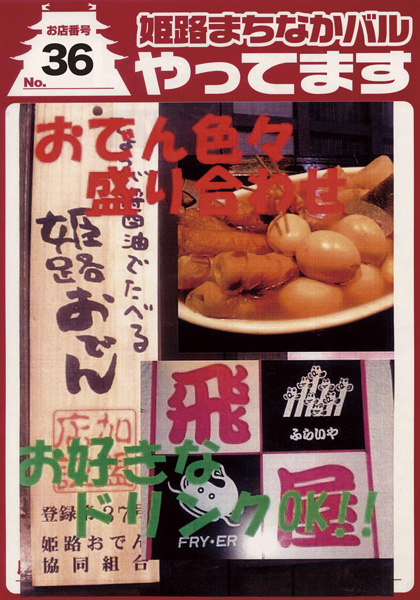 お店番号
No. 36
姫路まちなかバル
やってます
おでん色々
盛り合わせ
しょうが醤油でたべる
姫路おでん
加盟
店証
登録第27号
姫路おでん
協同組合
飛
ふらいや
FRY・ER
屋
お好きな
ドリンクOK!!